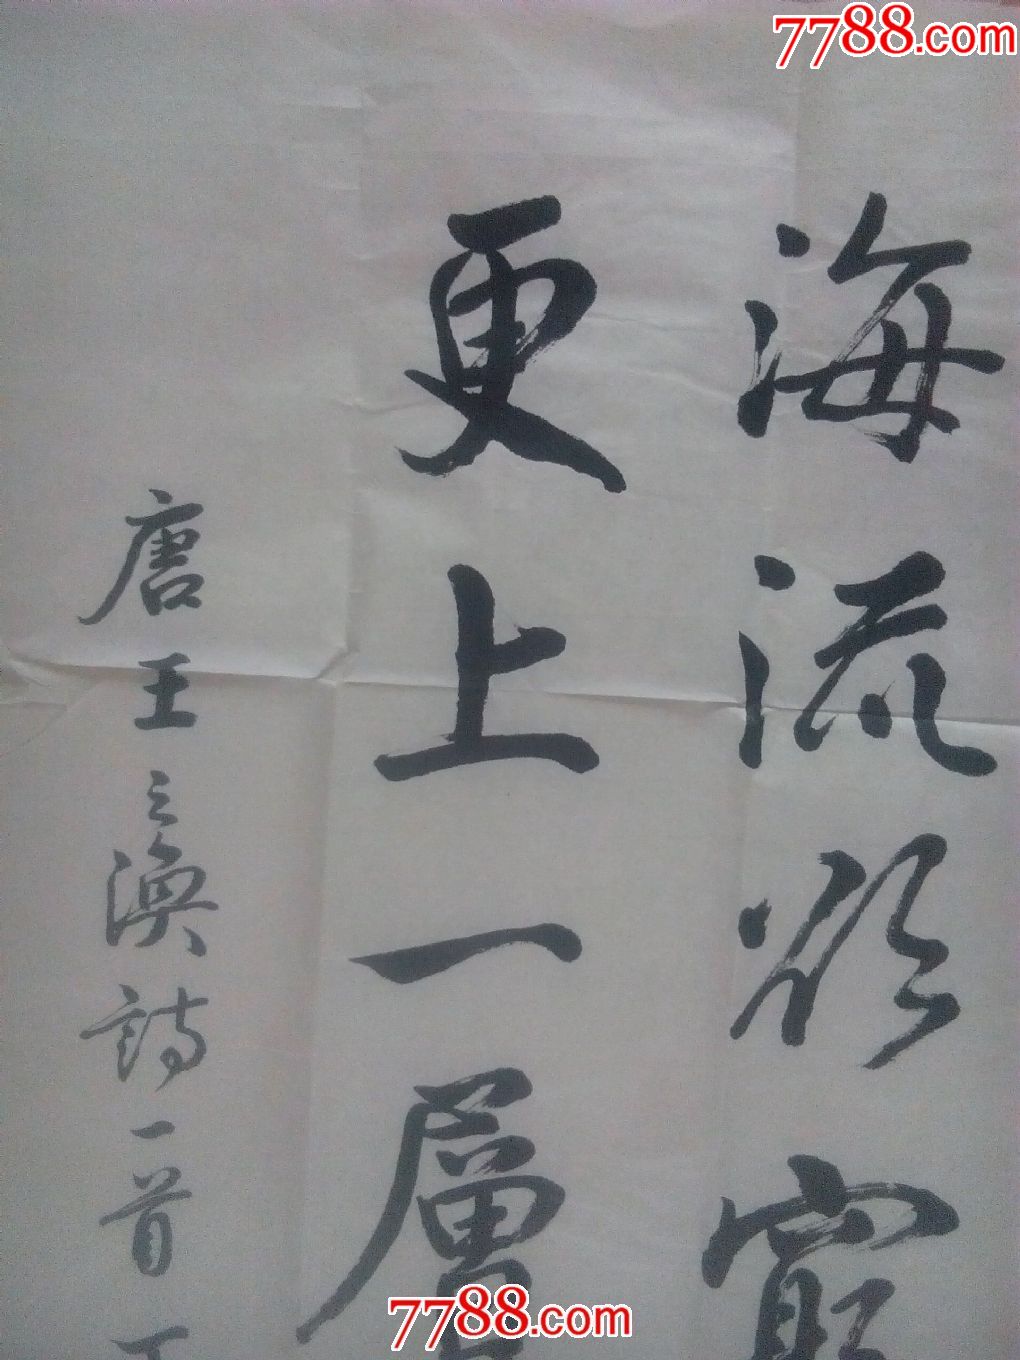 7788.com
海流欲窮
更上一層
唐王之渙詩一首丁
7788.com